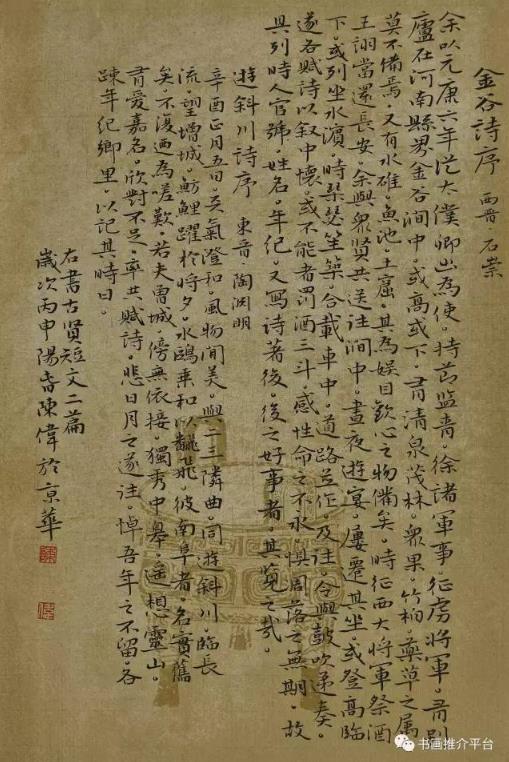 金谷詩序 西晋 石崇
余以元康六年從大僕卿出為使。持节监青。徐諸軍事。征虏將軍。有别
廬在河南縣界金谷澗中。或高或下。有清泉茂林。眾果。竹柏。藥草之属
莫不備焉。又有水碓。魚池。土窟。其為娱目歡心之物備矣。時征西大將軍祭酒
王詡當還長安。余與眾賢共送往澗中。晝夜遊宴。屢遷其坐。或登高臨
下。或列坐水濱。時琴瑟笙築。合載車中。道路並作。及往。令與鼓吹递奏。
遂各赋詩以叙中懷。或不能者罰酒三斗。感性命之不永。惧周落之無期。故
具列時人官號。姓名。年纪。又寫詩著後。後之好事者。其覧之哉。
遊斜川詩序 東晋 陶渊明
辛酉正月五日。天氣澄和。風物閒美。與二三隣曲。同遊斜川。臨長
流。望增城。魴鯉躍於將夕。水鷗乘和以飜飛。彼南阜者。名實舊
矣。不復迺為嗟歎。若夫曾城。傍無依接。獨秀中皋。遥想靈山。
有愛嘉名。欣對不足。率共賦詩。悲日月之遂往。悼吾年之不留。各
疎年纪鄉里。以記其時日。
右書古贤短文二篇
歲次丙申陽春陳偉於京華
書画推介平台